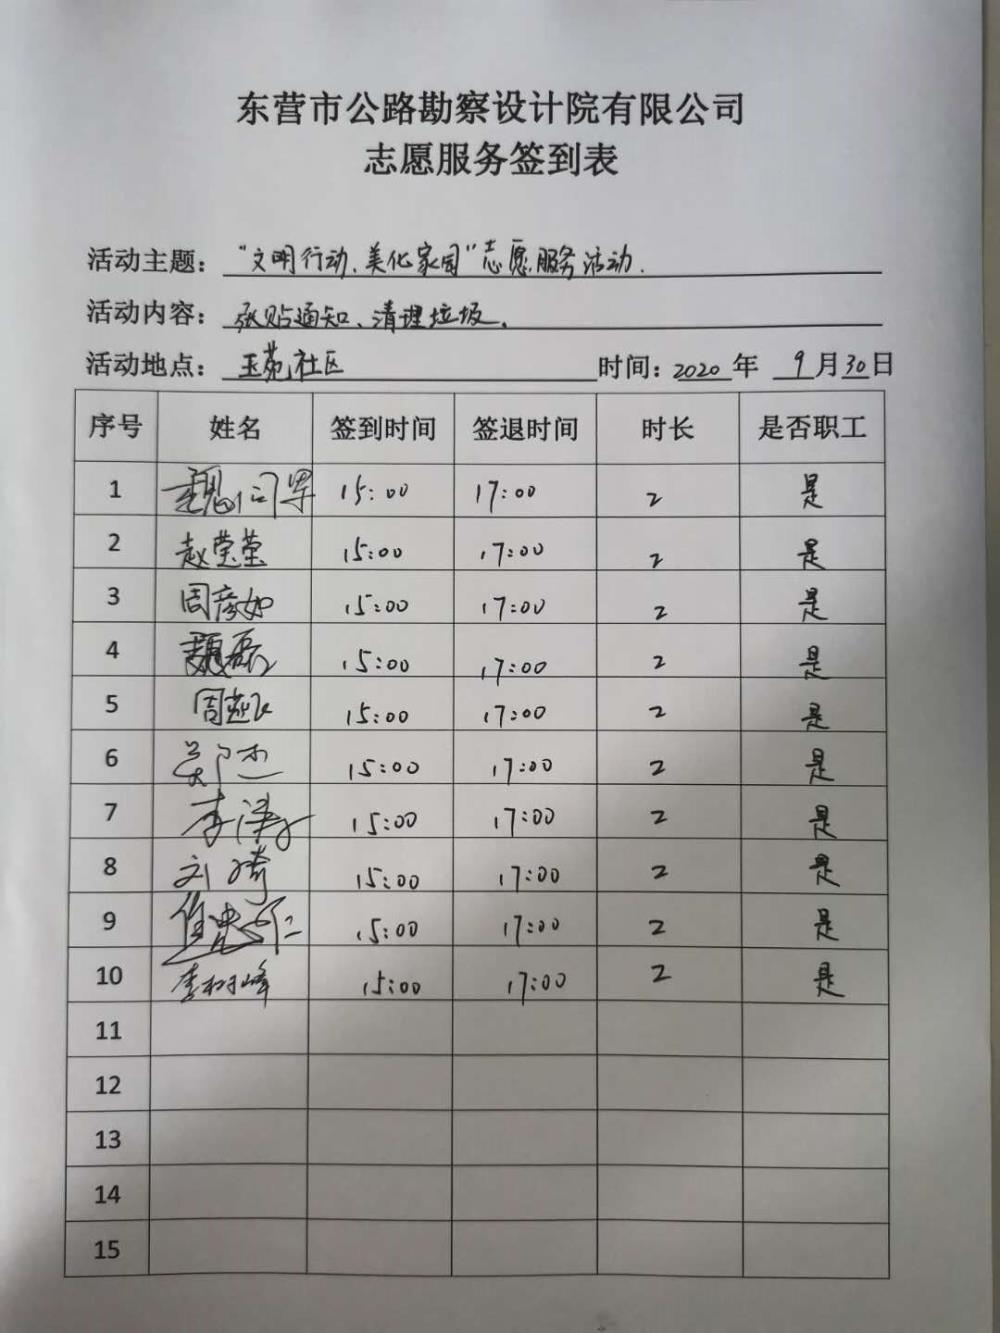 东营市公路勘察设计院有限公司
志愿服务签到表
活动主题：“文明行动、美化家园”志愿服务活动.
活动内容：张贴通知、清理垃圾.
活动地点：玉苑社区 时间：2020年 9月30日
序号 姓名 签到时间 签退时间 时长 是否职工
1 15:00 17:00 2 是
2 赵莹莹 15:00 17:00 2 是
3 周彦如 15:00 17:00 2 是
4 魏磊 15:00 17:00 2 是
5 周燕飞 15:00 17:00 2 是
6 郑杰 15:00 17:00 2 是
7 李泽 15:00 17:00 2 是
8 刘琦 15:00 17:00 2 是
9 15:00 17:00 2 是
10 李树峰 15:00 17:00 2 是
11
12
13
14
15